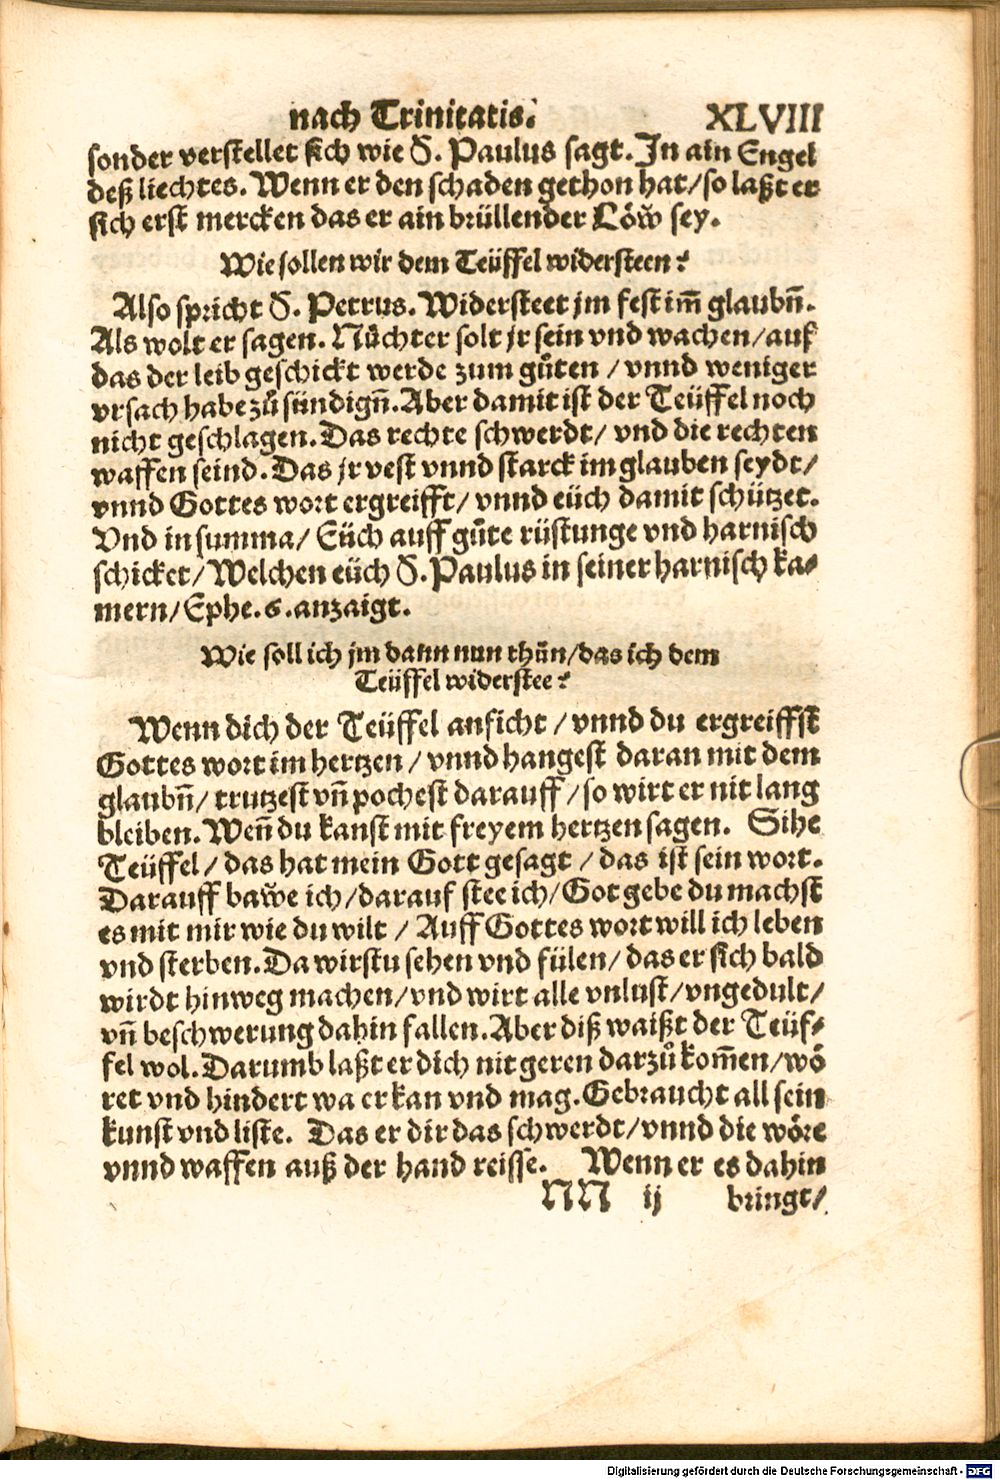 nach Trinitatis. XLVIII
sonder verstellet sich wie S. Paulus sagt. In ain Engel
deß liechtes. Wenn er den schaden gethon hat/ so laßt er
sich erst mercken das er ain brüllender Löw̆ sey.
Wie sollen wir dem Teüffel widersteen?
Also spricht S. Petrus. Widersteet jm fest im̃ glaubn̄.
Als wolt er sagen. Nůchter solt jr sein vnd wachen/ auf
das der leib geschickt werde zum gůten / vnnd weniger
vrsach habe zů sündign̄. Aber damit ist der Teüffel noch
nicht geschlagen. Das rechte schwerdt/ vnd die rechten
waffen seind. Das jr vest vnnd starck im glauben seydt/
vnnd Gottes wort ergreifft/ vnnd eüch damit schützet.
Vnd in summa/ Eüch auff gůte rüstunge vnd harnisch
schicket/ Welchen eüch S. Paulus in seiner harnisch ka⸗
mern/ Ephe. 6. anzaigt.
Wie soll ich jm dann nun thůn/ das ich dem
Teüffel widerstee?
Wenn dich der Teüffel anficht / vnnd du ergreiffst
Gottes wort im hertzen / vnnd hangest daran mit dem
glaubn̄/ trutzest vn̄ pochest darauff / so wirt er nit lang
bleiben. Wen̄ du kanst mit freyem hertzen sagen. Sihe
Teüffel / das hat mein Gott gesagt / das ist sein wort.
Darauff baw̆e ich/ darauf stee ich/ Got gebe du machst
es mit mir wie du wilt / Auff Gottes wort will ich leben
vnd sterben. Da wirstu sehen vnd fülen/ das er sich bald
wirdt hinweg machen/ vnd wirt alle vnlust/ vngedult/
vn̄ beschwerung dahin fallen. Aber diß waißt der Teüf⸗
fel wol. Darumb laßt er dich nit geren darzů kom̄en/ wö
ret vnd hindert wa er kan vnd mag. Gebraucht all sein
kunst vnd liste. Das er dir das schwerdt/ vnnd die wöre
vnnd waffen auß der hand reisse. Wenn er es dahin
NN ij bringt/
Digitalisierung gefördert durch die Deutsche Forschungsgemeinschaft - DFG